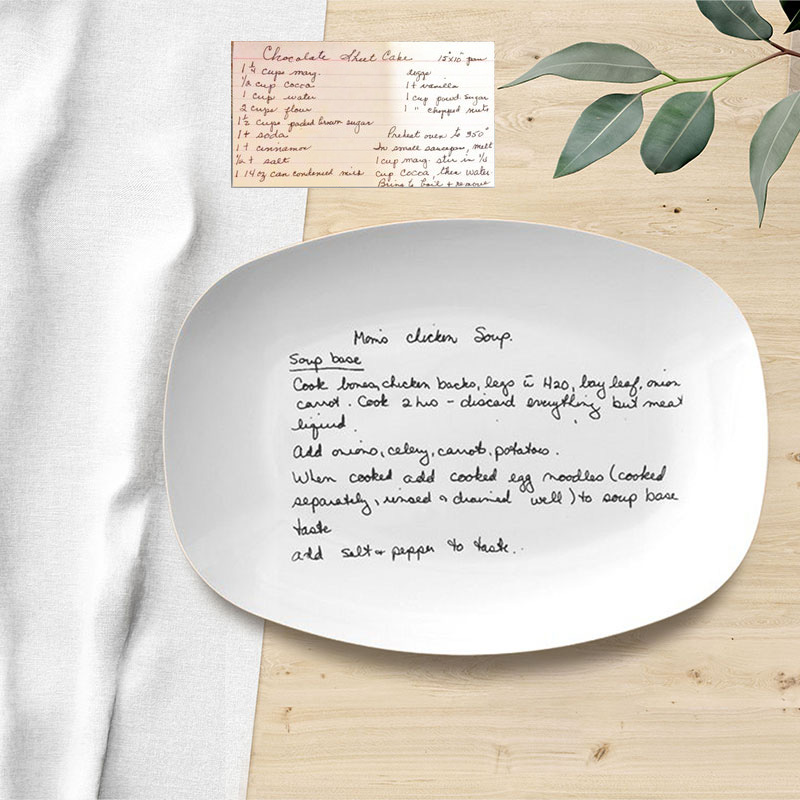 Chocolate Sheet Cake 15x10" pan
1 1/4 cups marg. eggs
1/2 cup cocoa 1 t vanilla
1 cup water 1 cup powd. sugar
2 cups flour 1 " chopped nuts
1 1/2 cups packed brown sugar
1 t soda Preheat oven to 350°
1 t cinnamon In small saucepan, melt
1/2 t salt 1 cup marg. stir in 1/4
1 14 oz can condensed milk cup cocoa, then water.
Bring to boil + remove
Mom's chicken Soup.
Soup base
Cook bones, chicken backs, legs c̄ H2O, bay leaf, onion
carrot. Cook 2 hrs - discard everything but meat
liquid.
Add onions, celery, carrots, potatoes.
When cooked add cooked egg noodles (cooked
separately, rinsed & drained well) to soup base
taste
add salt & pepper to taste..